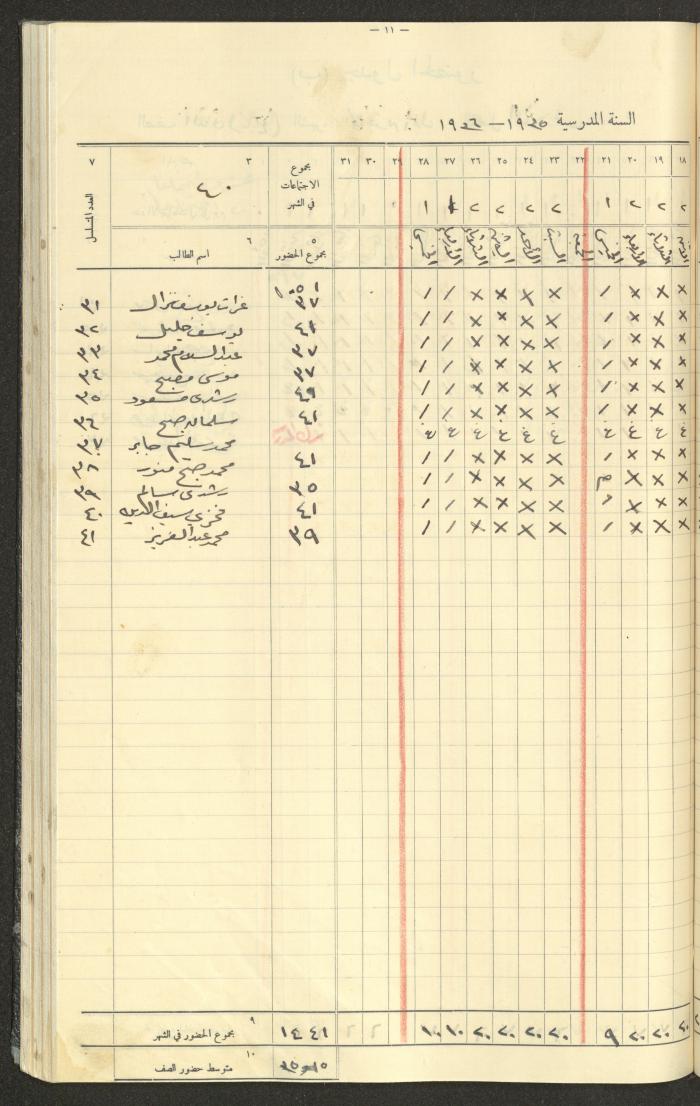 — ١١ —
السنة المدرسية ١٩٣٥ — ١٩٣٦
١٨ ١٩ ٢٠ ٢١ ٢٢ ٢٣ ٢٤ ٢٥ ٢٦ ٢٧ ٢٨ ٢٩ ٣٠ ٣١ مجموع الاجتماعات في الشهر ٣ ٧
٢ ٢ ٢ ١ ٢ ٢ ٢ ٢ ١ ١ ٤٠
الاثنين الثلاثاء الأربعاء الخميس الجمعة السبت الأحد الاثنين الثلاثاء الأربعاء الخميس ٥ مجموع الحضور ٦ اسم الطالب العدد المتسلسل
× × × / × × × × / / ٣٧ عزات يوسف نزال ٣١
× × × / × × × × / / ٤١ يوسف خليل ٣٢
× × × / × × × × / / ٣٧ عبد السلام محمد ٣٣
× × × / × × × × / / ٣٧ موسى مصبح ٣٤
× × × / × × × × / / ٤٩ رشدي مسعود ٣٥
× × × / × × × × / / ٤١ سلمان صبح ٣٦
غ غ غ غ غ غ غ غ غ غ محمد سليم جابر ٣٧
× × × / × × × × / / ٤١ محمد صبح منور
× × × م × × × × / / ٣٥ رشدي سالم ٣٩
× × × × × × × / / ٤١ فخري سيف الدين ٤٠
× × × / × × × × / / ٣٩ محمد عبد العزيز ٤١
٢٠ ٢٠ ٢٠ ٩ ٢٠ ٢٠ ٢٠ ٢٠ ١٠ ١٠ ١٤٤١ ٩ مجموع الحضور في الشهر
١٠ متوسط حضور الصف